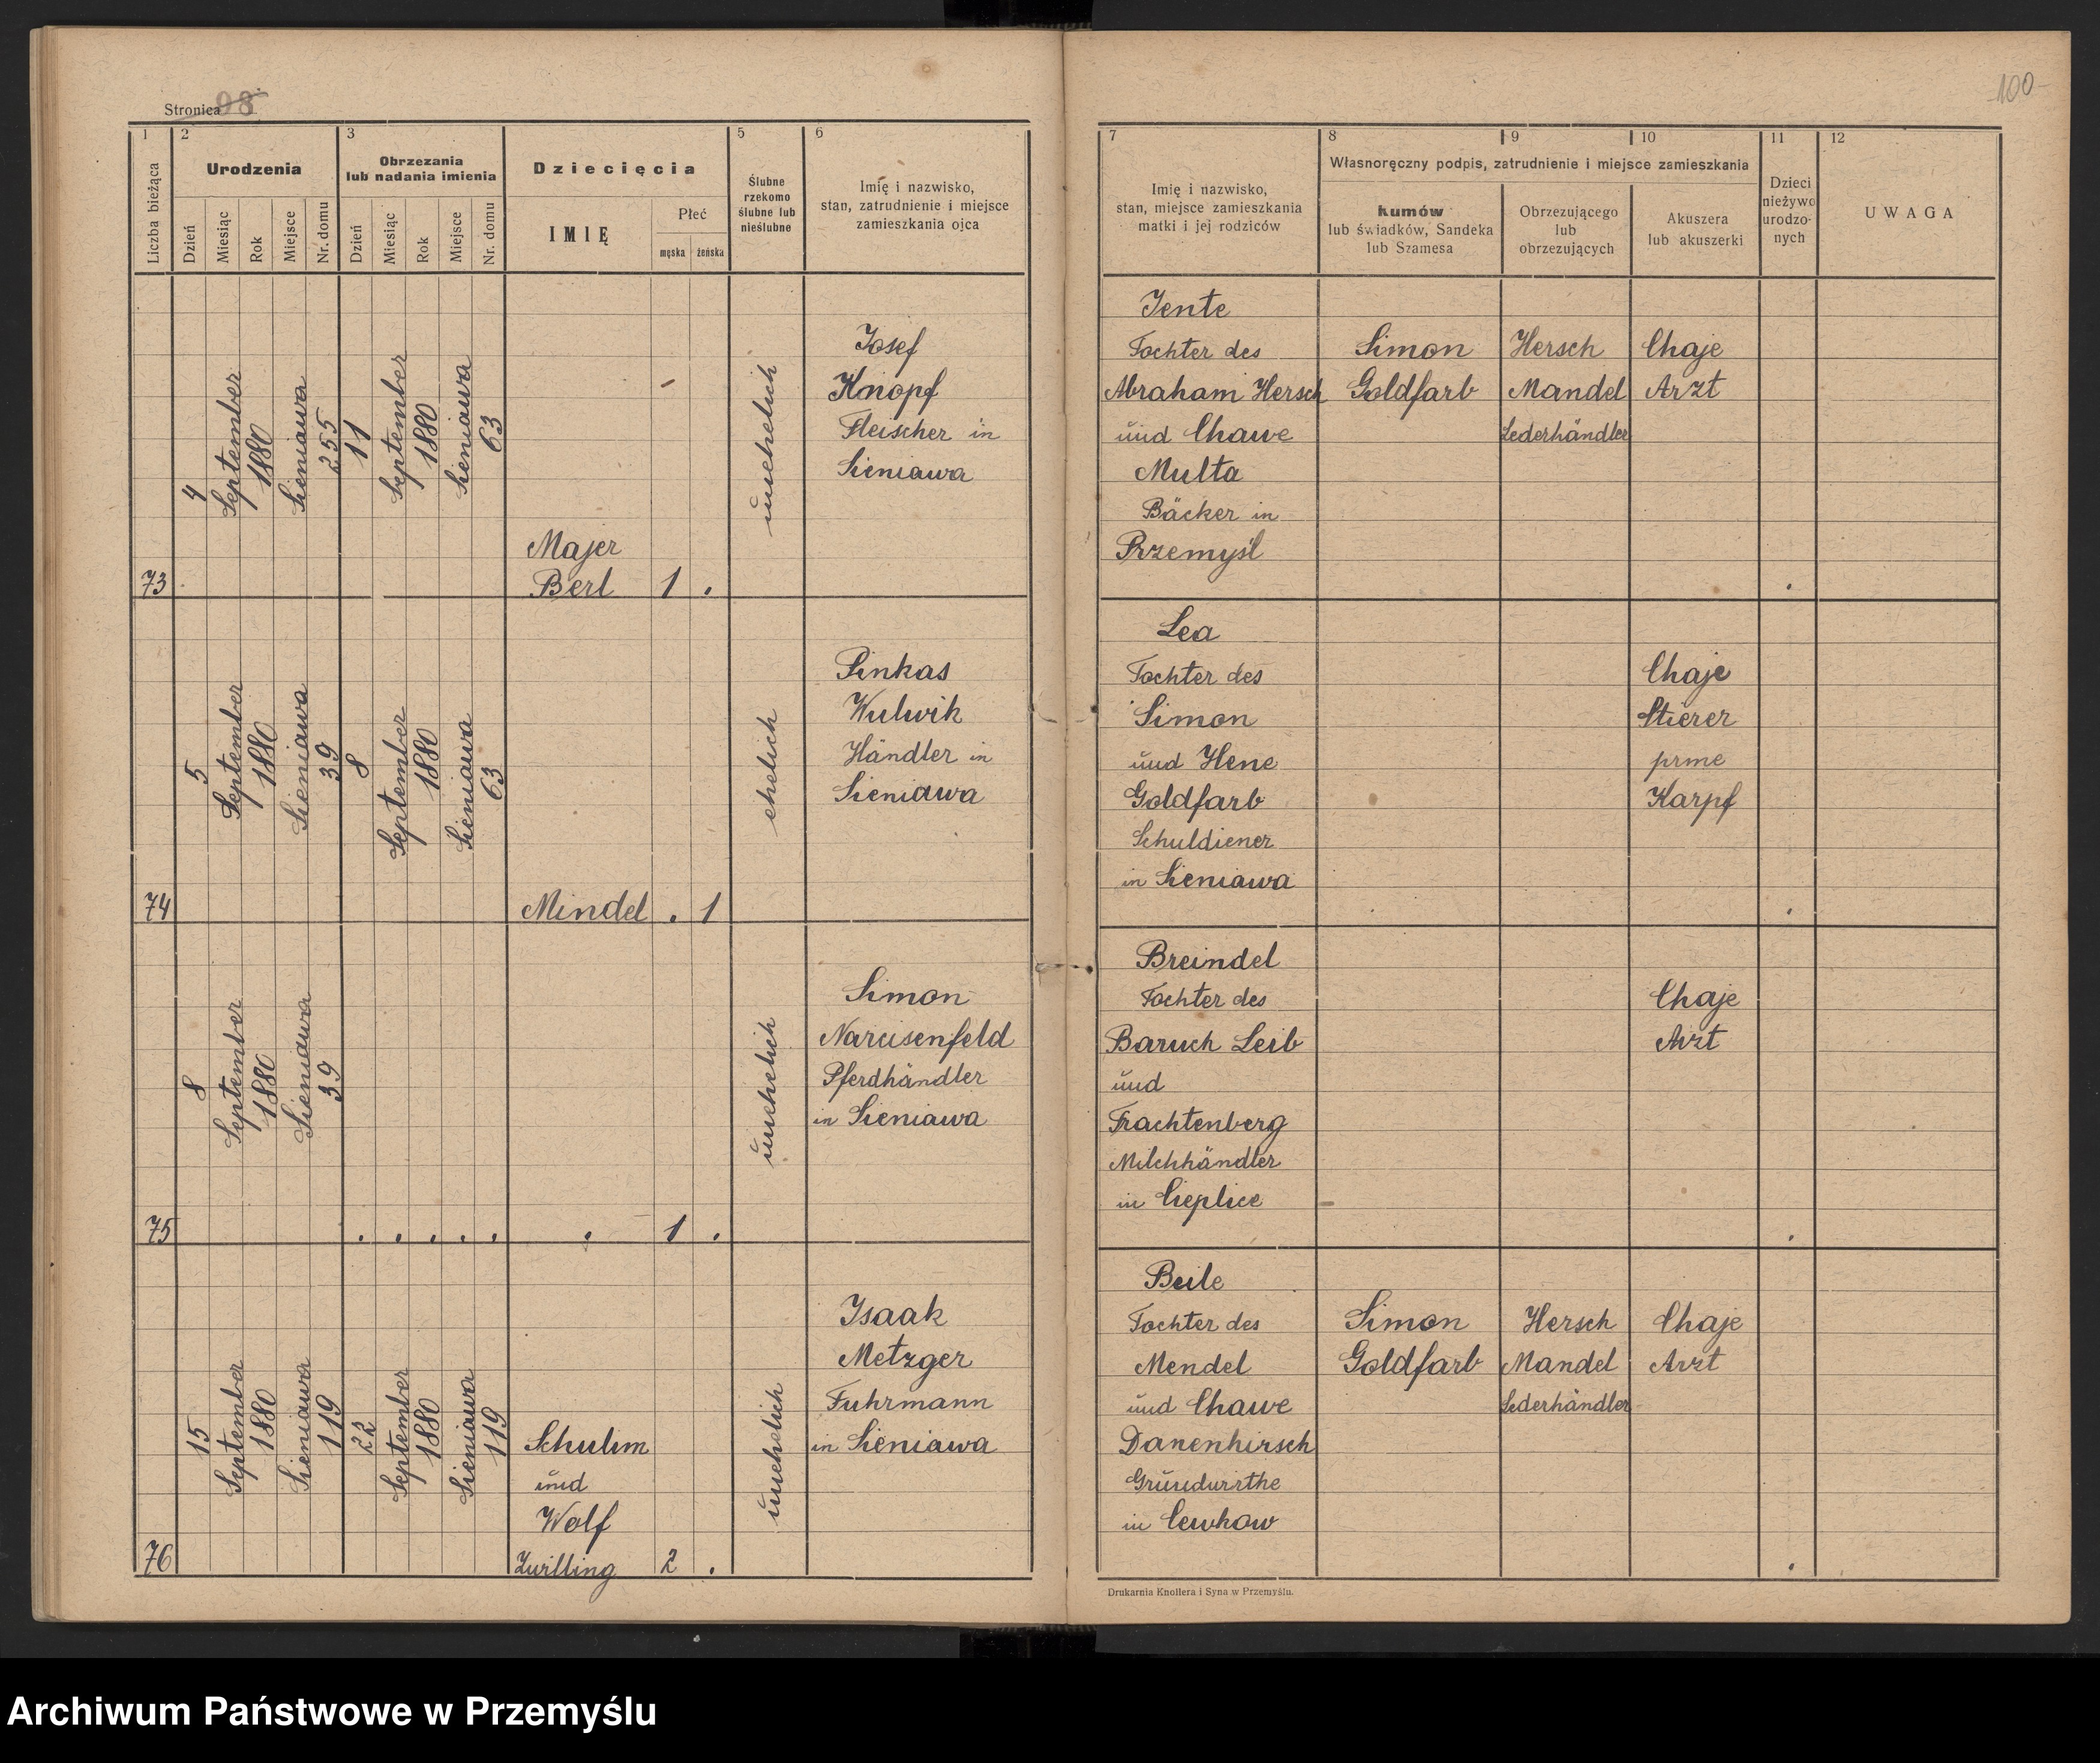 Stronica 98
100
1
2
3
5
6
Liczba bieżąca
Urodzenia
Obrzezania
lub nadania imienia
Dziecięcia
Ślubne
rzekomo
ślubne lub
nieślubne
Imię i nazwisko,
stan, zatrudnienie i miejsce
zamieszkania ojca
Dzień
Miesiąc
Rok
Miejsce
Nr. domu
Dzień
Miesiąc
Rok
Miejsce
Nr. domu
IMIĘ
Płeć
męska
żeńska
7
8
9
10
11
12
Imię i nazwisko,
stan, miejsce zamieszkania
matki i jej rodziców
Własnoręczny podpis, zatrudnienie i miejsce zamieszkania
kumów
lub świadków, Sandeka
lub Szamesa
Obrzezującego
lub
obrzezujących
Akuszera
lub akuszerki
Dzieci
nieżywo
urodzo-
nych
UWAGA
73
4
September
1880
Sieniawa
255
11
September
1880
Sieniawa
63
Majer
Berl
1 .
unehelich
Josef
Knopf
Fleischer in
Sieniawa
Jente
Tochter des
Abraham Hersch
und Chawe
Multa
Bäcker in
Przemyśl
Simon
Goldfarb
Hersch
Mandel
Lederhändler
Chaje
Arzt
.
74
5
September
1880
Sieniawa
39
8
September
1880
Sieniawa
63
Mindel
. 1
ehelich
Pinkas
Wulwik
Händler in
Sieniawa
Lea
Tochter des
Simon
und Hene
Goldfarb
Schuldiener
in Sieniawa
Chaje
Stierer
prme
Karpf
.
75
8
September
1880
Sieniawa
39
. . . . .
.
1 .
unehelich
Simon
Narcisenfeld
Pferdhändler
in Sieniawa
Breindel
Tochter des
Baruch Leib
und
Frachtenberg
Milchhändler
in Cieplice
Chaje
Arzt
.
76
15
September
1880
Sieniawa
119
22
September
1880
Sieniawa
119
Schulim
und
Wolf
Zwilling
2 .
unehelich
Isaak
Metzger
Fuhrmann
in Sieniawa
Beile
Tochter des
Mendel
und Chawe
Danenhirsch
Grundwirthe
in Cewkow
Simon
Goldfarb
Hersch
Mandel
Lederhändler
Chaje
Arzt
.
Drukarnia Knollera i Syna w Przemyślu.
Archiwum Państwowe w Przemyślu